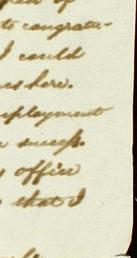 of
to congratu-
I could
here.
employment
success.
office
that I